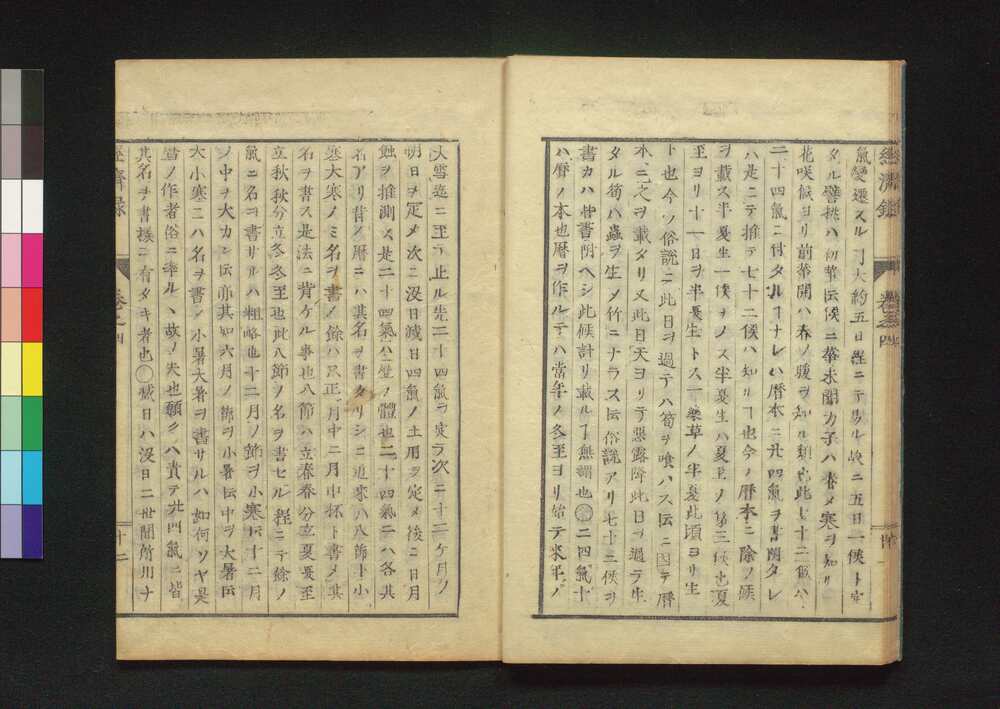 經濟録
卷之四
氣變遷スル丁大約五日程ニテ易ル故ニ五日一候ト定
タル譬桃ハ初華伝候ニ華未開カ子ハ春ノ寒ヲ知リ
花咲候ヨリ前華開ハ春ノ暖ヲ知ル類也此七十二候ハ
二十四氣ニ付タル丁ナレハ暦本ニ廾四氣ヲ書附タレ
ハ是ニテ推テ七十二候ハ知ルヽ丁也今ノ暦本ニ除ノ候
ヲ載ス半夏生一候ヲノス半夏生ハ夏至ノ第三候也夏
至ヨリ十一日ヲ半夏生トス一藥草ノ半夏此頃ヨリ生
ト也今ノ俗説ニ此日ヲ過テハ筍ヲ喰ハス伝ニ因テ暦
本ニ之ヲ載タリ又此日天ヨリテ惡露降此日ヲ過テ生
タル筍ハ蟲ヲ生メ竹ニナラス伝俗説アリ七十二候ヲ
書カハ皆書附ヘシ此候計リ載ル丁無謂也○二四氣十
ハ暦ノ本也暦ヲ作ルテハ當年ノ冬至ヨリ始テ來年ノ
大雪迄ニ至テ止ル先二十四氣ヲ定ラ次ニ十二ケ月ノ
朔日ヲ定メ次ニ沒日滅日四氣ノ土用ヲ定メ後ニ日月
蝕ヲ推測ス是二十四氣ハ暦ノ體也二十四氣ニハ各其
名アリ昔ノ暦ニハ其名ヲ書タリシニ近來ハ八節ト小
寒大寒ノミ名ヲ書ノ餘ハ只正月中二月中抔ト書メ其
名ヲ書ス是法ニ背ケル事也八節ハ立春春分立夏夏至
立秋秋分立冬冬至也此八節ノ名ヲ書セル程ニテ餘ノ
氣ニ名ヲ書サルハ粗略也十二月ノ節ヲ小寒伝十二月
ノ中ヲ大カン伝亦其如六月ノ節ヲ小暑伝中ヲ大暑伝
大小寒ニハ名ヲ書ノ小暑大暑ヲ書サルハ如何ソヤ是
暦ノ作者俗ニ牽ルヽ故ノ失也願クハ責テ廾四氣ニ皆
其名ヲ書樣ニ有タキ者也○滅日ハ沒日ニ世間所用ナ
經濟録
卷之四
十二